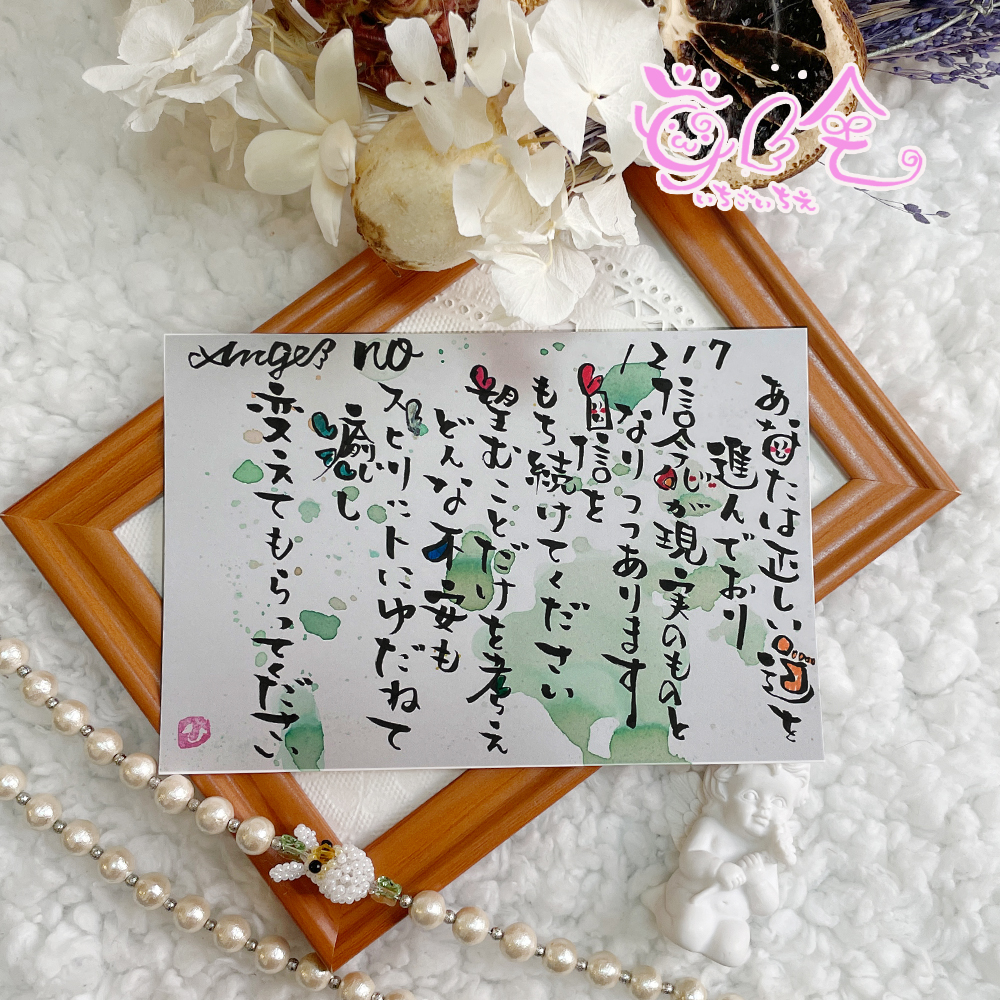 苺心舎
いちごいちえ
Angel no
1217
あなたは正しい道を
進んでおり
信念が現実のものと
なりつつあります
自信を
もち続けてください
望むことだけを考え
どんな不安も
スピリットにゆだねて
癒し
変えてもらってください